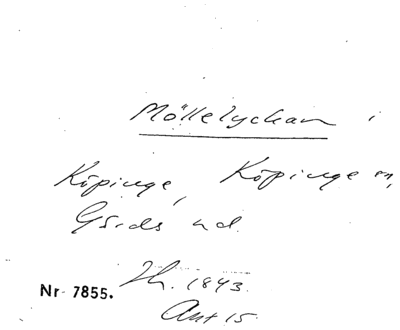 Möllelyckan i
Köpinge, Köpinge sn,
Gärds hd.
Th. 1843.
Ant 15.
Nr 7855.